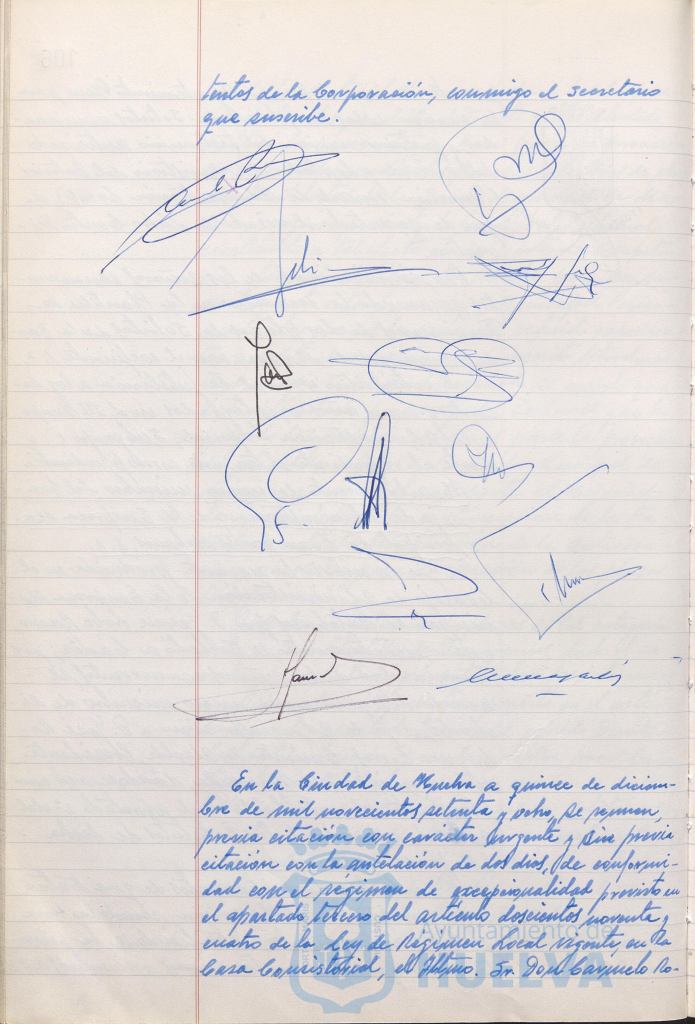 tentes de la Corporación, conmigo el Secretario
que suscribe.
En la Ciudad de Huelva a quince de diciem-
bre de mil novecientos setenta y ocho, se reunen,
previa citación con carácter urgente y sin previa
citación con la antelación de dos días, de conformi-
dad con el régimen de excepcionalidad previsto en
el apartado tercero del artículo doscientos noventa y
cuatro de la Ley de Régimen Local vigente, en la
Casa Consistorial, el Iltmo. Sr. Don Carmelo Ro-
Ayuntamiento de
HUELVA